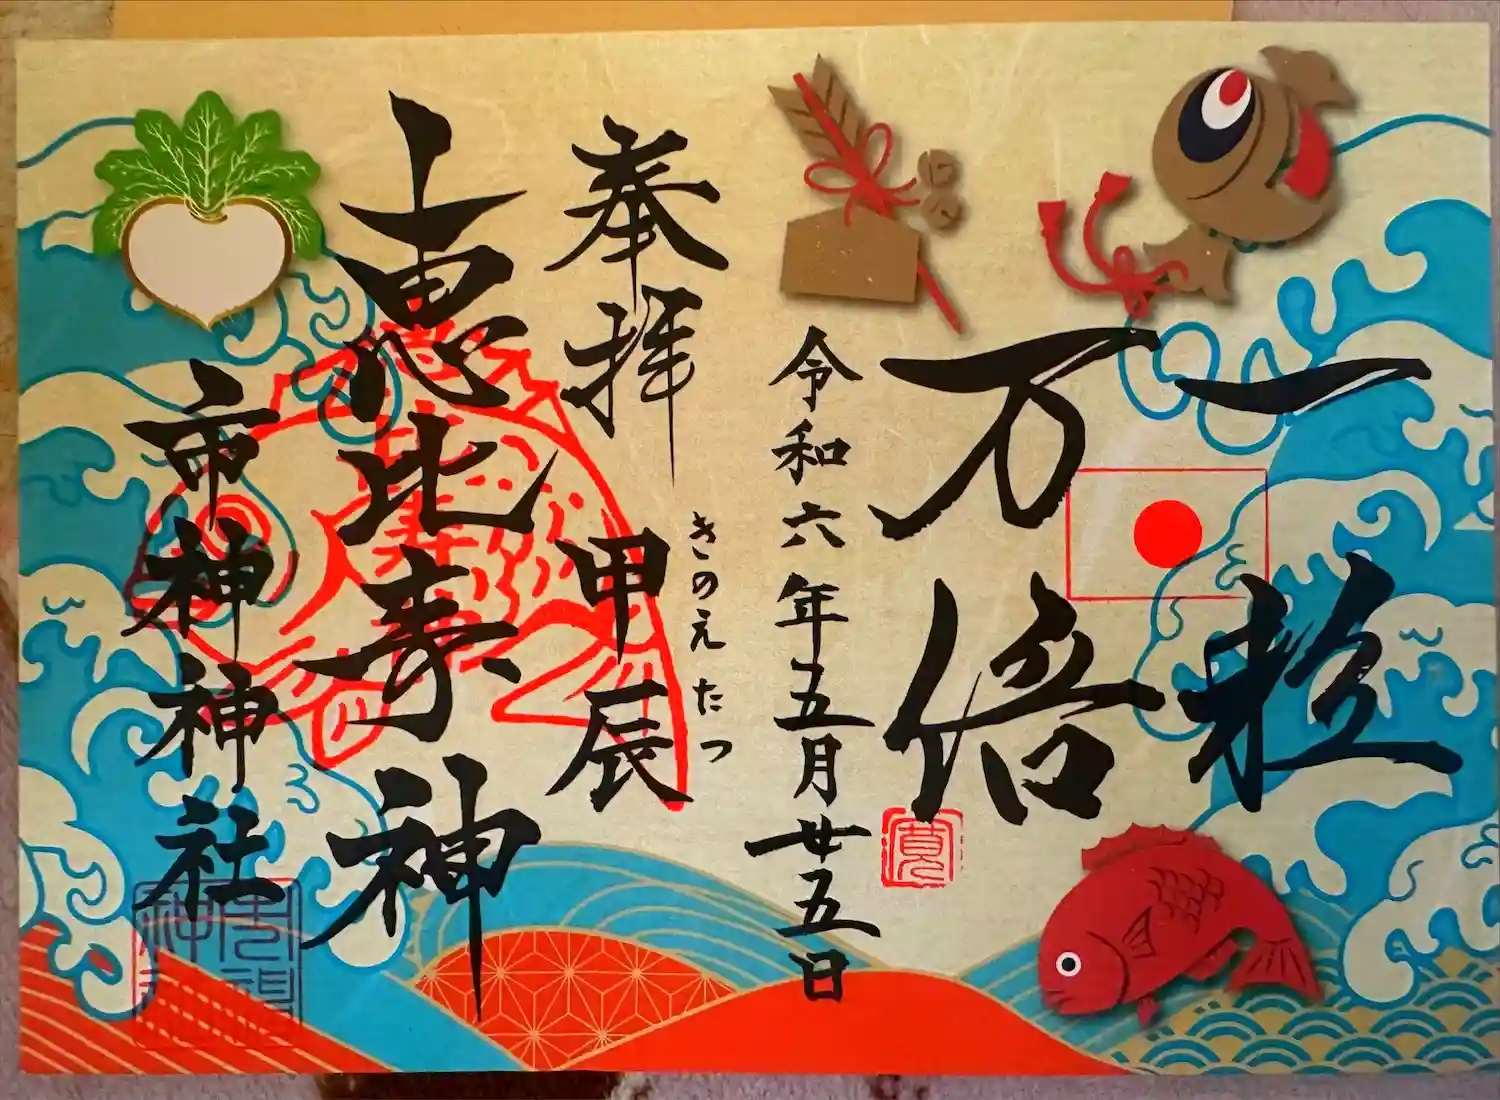 一粒
万倍
令和六年五月廿五日
奉拝
きのえたつ
甲辰
恵比寿神
市神神社